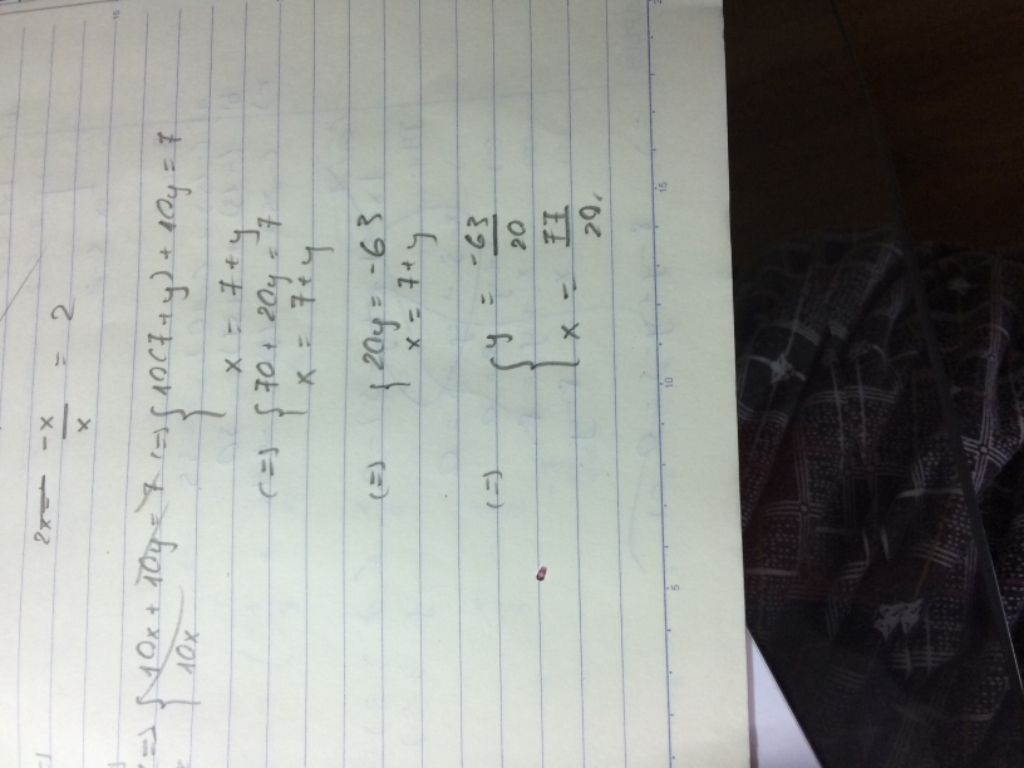 2x - x / x = 2
<=> { 10x + 10y = 7 <=> { 10(7+y) + 10y = 7
{ 10x { x = 7+y
<=> { 70 + 20y = 7
{ x = 7+y
<=> { 20y = -63
x = 7+y
<=> { y = -63/20
{ x = 77/20.
5 10 15